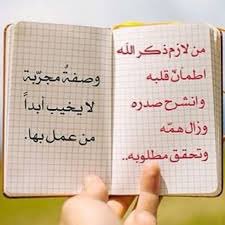 من لازم ذكر الله
اطمأن قلبه
وانشرح صدره
وزال همّه
وتحقق مطلوبه..
وصفةٌ مجرّبة
لا يخيب أبداً
من عمل بها.